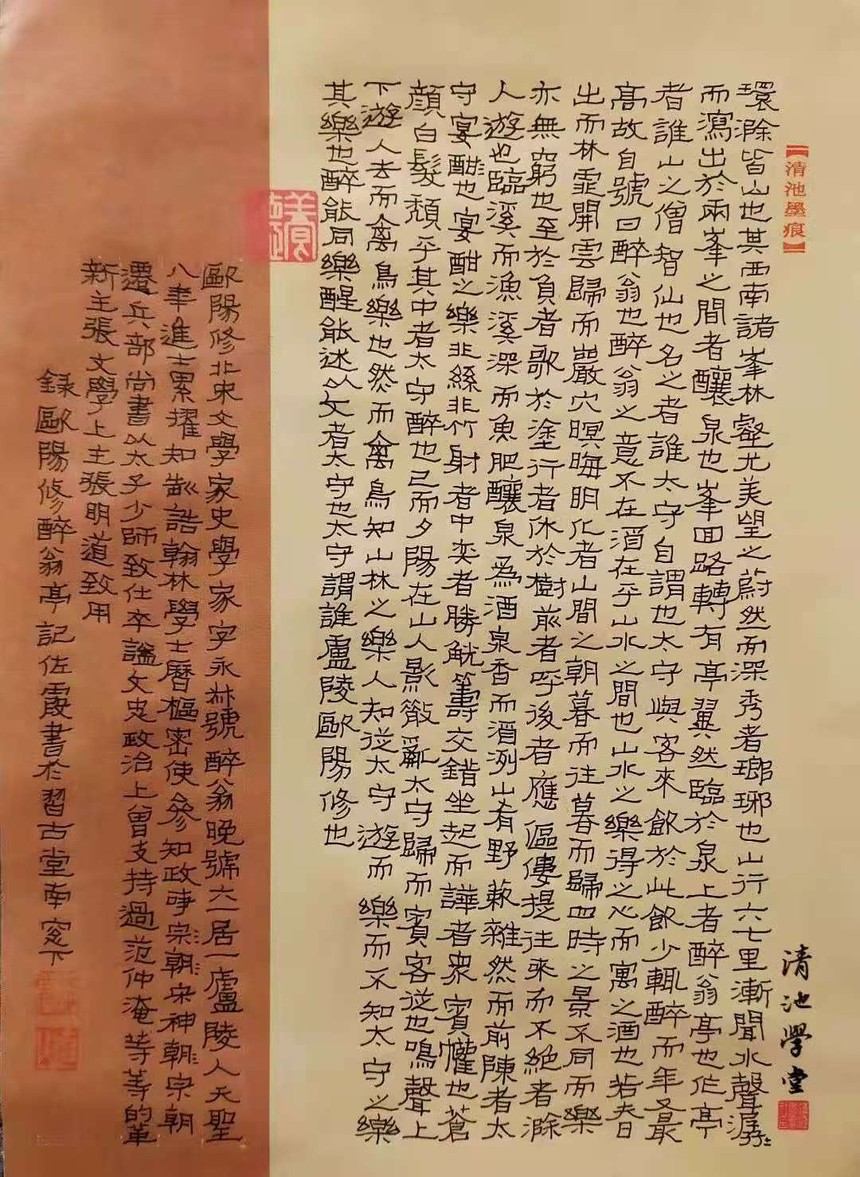 【清池墨痕】
清池學堂
環滁皆山也其西南諸峯林壑尤美望之蔚然而深秀者瑯琊也山行六七里漸聞水聲潺〻
而瀉出於兩峯之間者釀泉也峯回路轉有亭翼然臨於泉上者醉翁亭也作亭
者誰山之僧智仙也名之者誰太守自謂也太守與客來飲於此飲少輒醉而年又最
高故自號曰醉翁也醉翁之意不在酒在乎山水之間也山水之樂得之心而寓之酒也若夫日
出而林霏開雲歸而巖穴暝晦明化者山間之朝暮而往暮而歸四時之景不同而樂
亦無窮也至於負者歌於塗行者休於樹前者呼後者應傴僂提往來而不絕者滁
人遊也臨溪而漁溪深而魚肥釀泉為酒泉香而酒洌山肴野蔌雜然而前陳者太
守宴酣也宴酣之樂非絲非竹射者中奕者勝觥籌交錯坐起而譁者衆賓懽也蒼
顏白髮頹乎其中者太守醉也已而夕陽在山人影散亂太守歸而賓客從也鳴聲上
下遊人去而禽鳥樂也然而禽鳥知山林之樂人知從太守遊而樂而不知太守之樂
其樂也醉能同樂醒能述以文者太守也太守謂誰廬陵歐陽修也
歐陽修北宋文學家史學家字永叔號醉翁晚號六一居一廬陵人天聖
八年進士累擢知制誥翰林學士曆樞密使參知政事宗朝宋神朝宗朝
遷兵部尚書以太子少師致仕卒諡文忠政治上曾支持過范仲淹等等的革
新主張文學上主張明道致用
錄歐陽修醉翁亭記佐霞書於習古堂南窓下